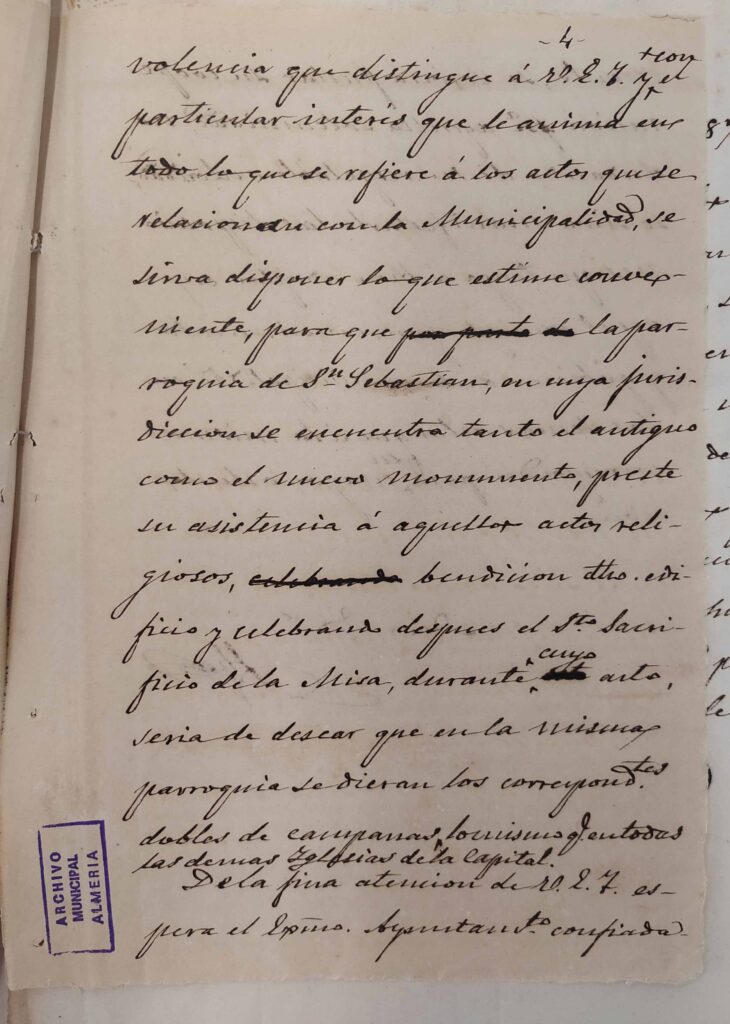 -4-
volencia que distingue á V. E. I. y con el
particular interés que le anima en
todo lo que se refiere á los actos que se
relacionan con la Municipalidad, se
sirva disponer lo que estime conve-
niente, para que por parte de la par-
roquia de Sn Sebastian, en cuya juris-
diccion se encuentra tanto el antiguo
como el nuevo monumento, preste
su asistencia á aquellos actos reli-
giosos, celebrando bendicion dho. edi-
ficio y celebrando despues el Sto. Sacri-
ficio de la Misa, durante cuyo este acto,
seria de desear que en la misma
parroquia se dieran los correspondtes.
dobles de campanas, lo mismo q. en todas
las demas Iglesias de la Capital.
De la fina atencion de V. E. I. es-
pera el Exmo. Ayuntamto. confiada-
ARCHIVO
MUNICIPAL
ALMERIA